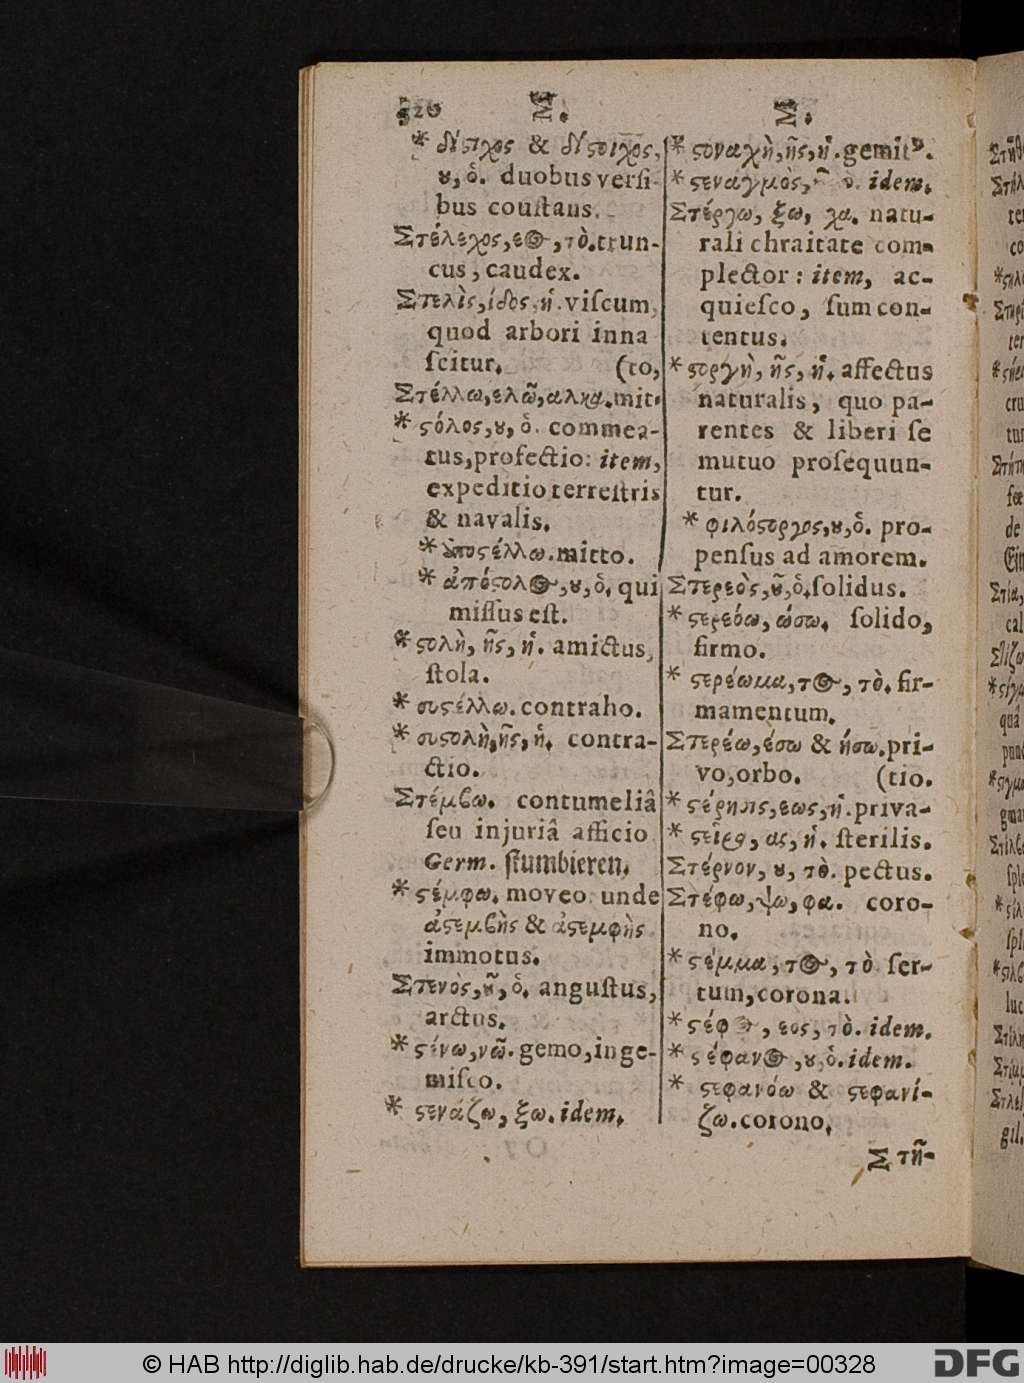 320 Σ. Σ.
* δίστιχος & δίστοιχος,
ȣ, ὁ. duobus versi-
bus constans.
Στέλεχος, εος, τὸ. trun-
cus, caudex.
Στελὶς, ίδος, ἡ. viſcum,
quod arbori inna
ſcitur. (to,
Στέλλω, ελῶ, αλκα. mit-
* ϛόλος, ȣ, ὁ. commea-
tus, profectio: item,
expeditio terreſtris
& navalis.
* ὑποϛέλλω. mitto.
* ἀπόϛολος, ȣ, ὁ. qui
miſſus eſt.
* ϛολὴ, ῆς, ἡ. amictus,
ſtola.
* συϛέλλω. contraho.
* συϛολὴ, ῆς, ἡ. contra-
ctio.
Στέμβω. contumeliâ
ſeu injuriâ afficio
Germ. ſtumbieren.
* ϛέμφω. moveo. unde
ἀϛεμβὴς & ἀϛεμφὴς
immotus.
Στενὸς, ȣ͂, ὁ. anguſtus,
arctus.
* ϛένω, νῶ. gemo, inge-
miſco.
* ϛενάζω, ξω. idem.
* ϛοναχὴ, ῆς, ἡ. gemitꝰ.
* ϛεναγμὸς, ȣ͂ ὁ. idem.
Στέργω, ξω, χα. natu-
rali chraitate com-
plector: item, ac-
quieſco, ſum con-
tentus.
* ϛοργὴ, ῆς, ἡ. affectus
naturalis, quo pa-
rentes & liberi ſe
mutuo proſequun-
tur.
* φιλόϛοργος, ȣ, ὁ. pro-
penſus ad amorem.
Στερεὸς, ȣ͂, ὁ. ſolidus.
* ϛερεόω, ώσω. ſolido,
firmo.
* ϛερέωμα, τος, τὸ. fir-
mamentum.
Στερέω, έσω & ήσω. pri-
vo, orbo. (tio.
* ϛέρησις, εως, ἡ. priva-
* ϛεῖρα, ας, ἡ. ſterilis.
Στέρνον, ȣ, τὸ. pectus.
Στέφω, ψω, φα. coro-
no.
* ϛέμμα, τος, τὸ ſer-
tum, corona.
* ϛέφος, εος, τὸ. idem.
* ϛέφανος, ȣ, ὁ. idem.
* ϛεφανόω & ϛεφανί-
ζω. corono.
Στῆ-
© HAB http://diglib.hab.de/drucke/kb-391/start.htm?image=00328
DFG